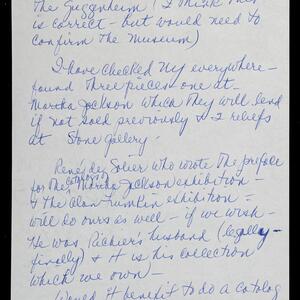 The Guggenheim (I think this
is correct - but would need to
confirm the museum)
I have checked NY everywhere -
found three pieces - one at
Martha Jackson which they will lend
if not sold previously & 2 reliefs
at Stone Gallery -
René de Solier who wrote the preface
for the Martha Jackson exhibition -
& the Alan Frumkin exhibition =
will do ours as well - if we wish -
He was Richier's husband (legally -
finally) & it is his collection
which we own -
Would it benefit to do a catalog